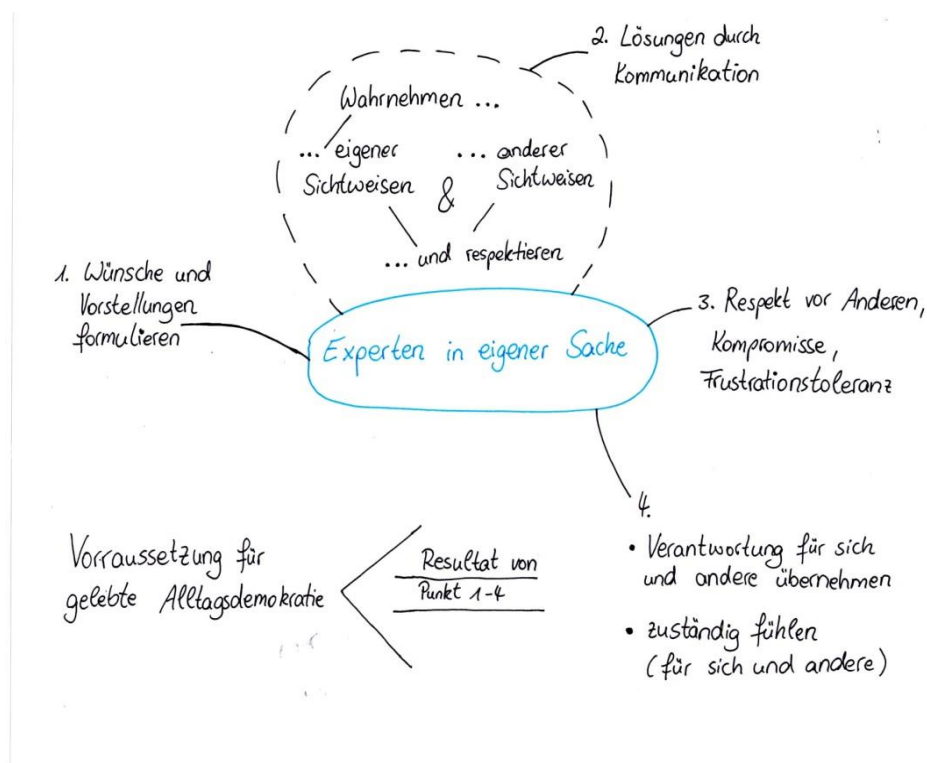 2. Lösungen durch
Kommunikation
Wahrnehmen ...
... eigener
Sichtweisen
&
... anderer
Sichtweisen
... und respektieren
1. Wünsche und
Vorstellungen
formulieren
Experten in eigener Sache
3. Respekt vor Anderen,
Kompromisse,
Frustrationstoleranz
4.
• Verantwortung für sich
und andere übernehmen
• zuständig fühlen
(für sich und andere)
Resultat von
Punkt 1-4
Vorraussetzung für
gelebte Alltagsdemokratie